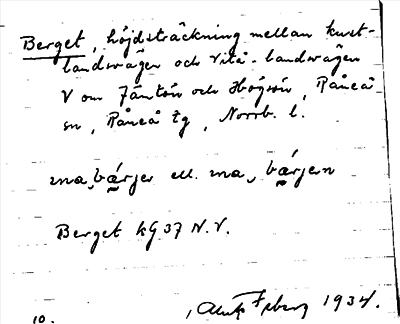 Berget, höjdsträckning mellan kust-
landsvägen och Vitå-landsvägen
V om Jämtön och Högsön, Råneå
sn, Råneå tg, Norrb. l.
ma bárjer ell. ma bárjern
Berget kG 37 N.V.
10. 1934.